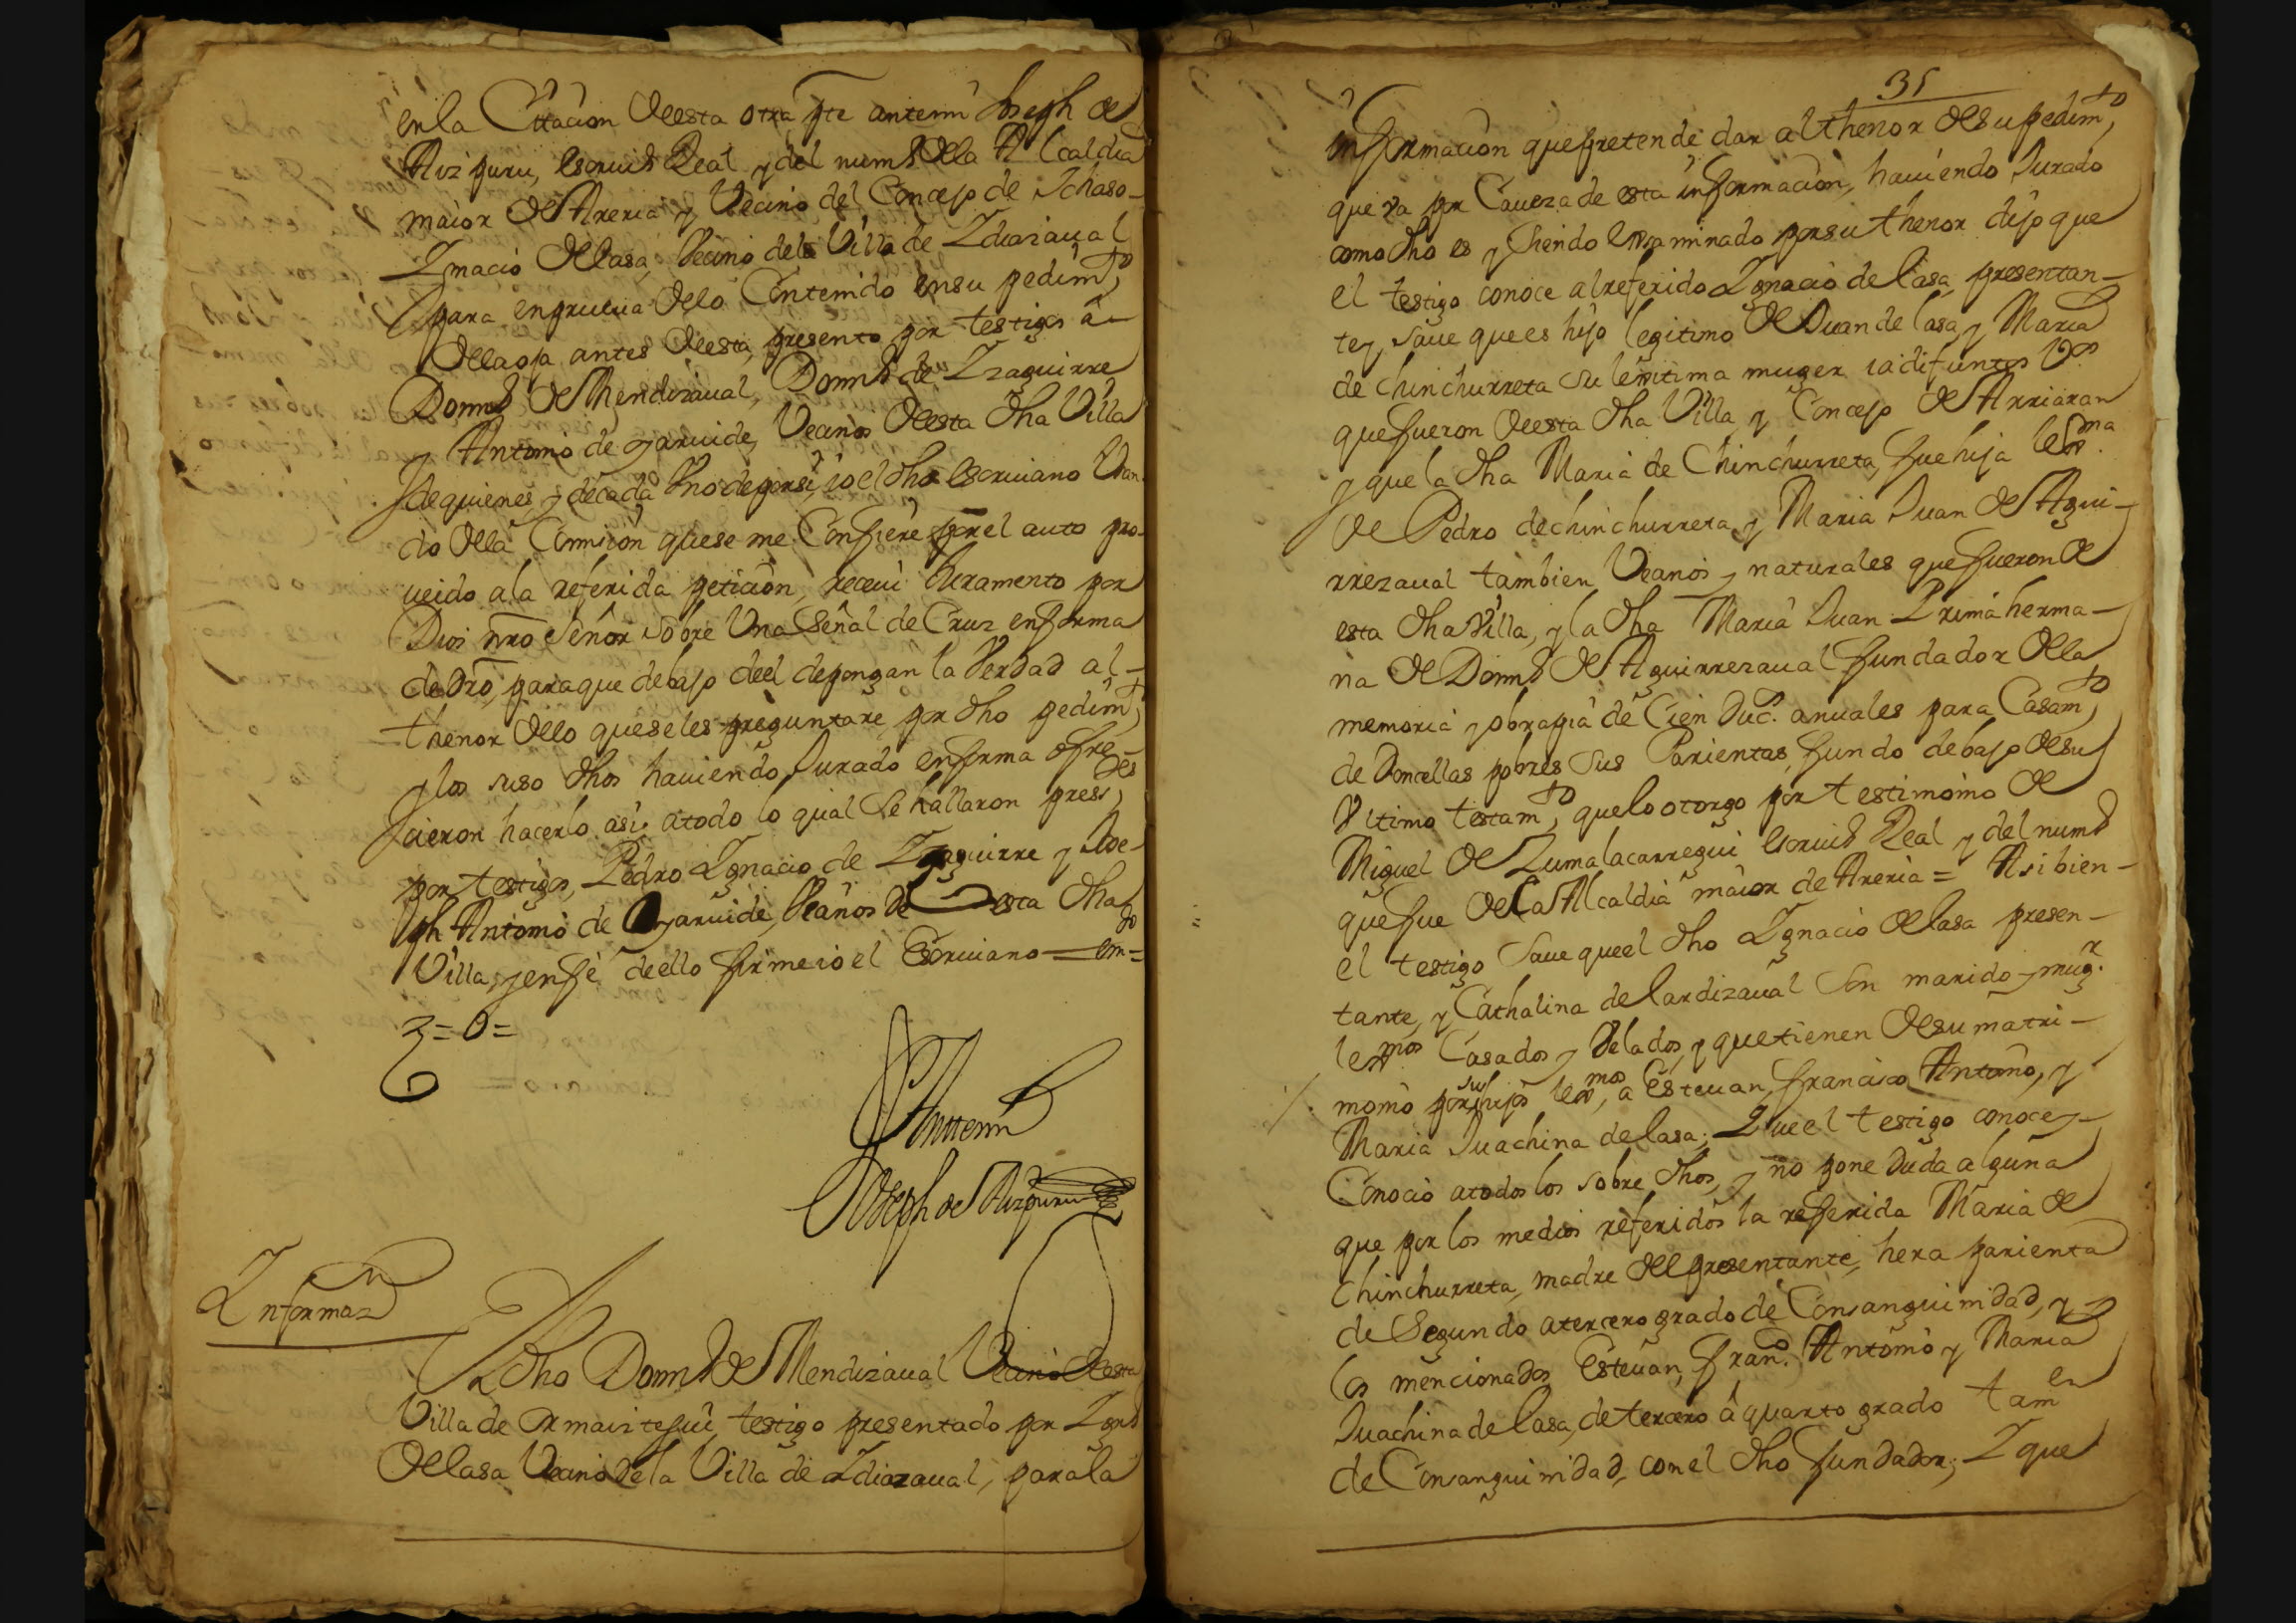 en la Cittacion de esta otra pte antemi Joseph de
Aizpuru, escriuº Real y del numº de la Alcaldia
maior de Areria y Vecino del Concejo de Ichaso-
Ignacio de lasa, Vecino de la Villa de Idiazaual
para en prueua de lo Contenido en su pedimto,
de la oja antes de esta, presento por testigos a
Domº de Mendizaual, Domº de Izaguirre
y Antonio de Garuide, Vecinos de esta dha Villa
de quienes, y de cada Vno de por si, io el dho escriuano Vsan
do de la Comicion que se me Confiere por el auto pro-
ueido a la referida peticion, receui Juramento por
Dios nro Señor sobre Vna Señal de Cruz en forma
de dro, para que debajo de el depongan la Verdad al-
thenor de lo que se les preguntare por dho pedimto,
y los suso dhos hauiendo Jurado en forma ofre-
cieron hacerlo asi, a todo lo qual se hallaron press.es
por testigos, Pedro Ignacio de Izaguirre y Jose-
ph Antonio de Garuide, Vecinos de esta dha
Villa, y en fe de ello firme io el Escriuano = emdo =
z = O =
Antemi
Joseph de Aizpuru
Informazn
El dho Domº de Mendizaual Vecino de esta
Villa de Ormaiztegui, testigo presentado por Ignº
de lasa Vecino de la Villa de Idiazaual, para la
31
informacion que pretende dar al thenor de su pedimto,
que va por Caueza de esta informacion, hauiendo Jurado
como dho es y siendo examinado por su thenor dijo que
el testigo conoce al referido Ignacio de lasa, presentan-
te y saue que es hijo legitimo de Juan de lasa, y Maria
de Chinchurreta su lexitima muger ia difuntos Vos
que fueron de esta dha Villa y Concejo de Arriaran
y que la dha Maria de Chinchurreta, fue hija lexma
de Pedro de chinchurreta, y Maria Juan de Agui-
rrezaual tambien Vecinos y naturales que fueron de
esta dha Villa, y la dha Maria Juan Prima herma-
na de Domº de Aguirrezaual fundador de la
memoria y obrapia de Cien Duc.s anuales para Casamto
de Doncellas pobres sus Parientas, fundo debajo de su
Vltimo testamto, que lo otorgo por testimonio de
Miguel de Zumalacarregui escriuº Real y del numº
que fue de la Alcaldia maior de Areria = Asi bien-
el testigo saue que el dho Ignacio de lasa presen-
tante, y Cathalina de lardizaual son marido y mugr
lexmos Casados y Velados, y que tienen de su matri-
monio por sus hijos lexmos, a Esteuan, francisco Antonio, y
Maria Juachina de lasa; Que el testigo conoce y
Conocio a todos los sobre dhos, y no pone duda alguna
que por los medios referidos la referida Maria de
Chinchurreta, madre del presentante, hera parienta
de Segundo a tercero grado de Consanguinidad, y
los mencionados Esteuan, franco Antonio y Maria
Juachina de lasa, de tercero a quarto grado tamen
de Consanguinidad, con el dho fundador; I que